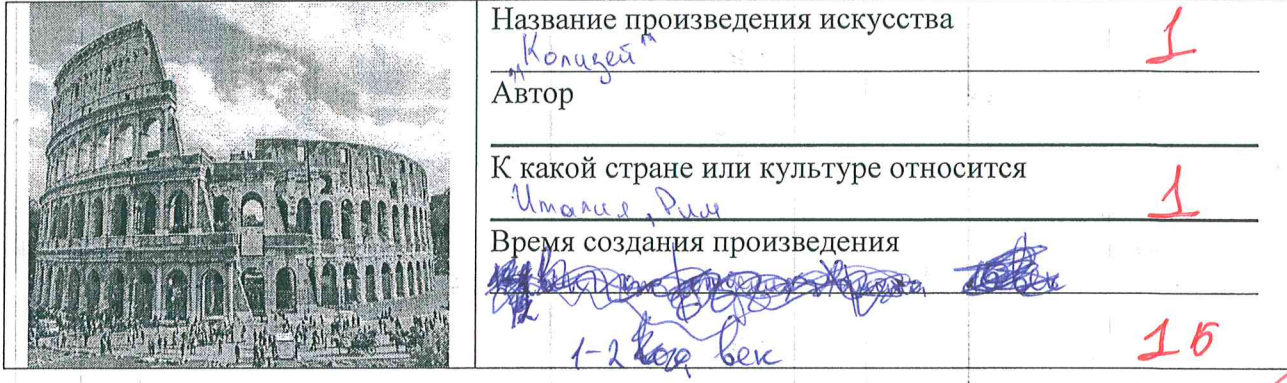 Название произведения искусства
1
„Колизей"
Автор
К какой стране или культуре относится
1
Италия, Рим
Время создания произведения
1-2 век
1б